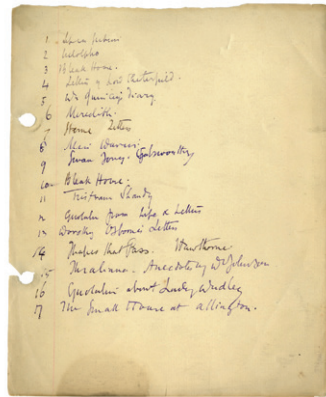 1
2 Udolpho
3 Bleak House.
4 Letters of Lord Chesterfield.
5 Diary
6 Meredith.
7 Letters
8
9 Swan Song. Galsworthy
10 Bleak House.
11 Tristram Shandy
12 Quotation from Life & Letters
13 Dorothy Osborne's Letters
14 Shapes that Pass. Hawthorne
15 Thraliana. Anecdotes by Dr Johnson
16 Quotation about Lady Dudley
17 The Small House at Allington.